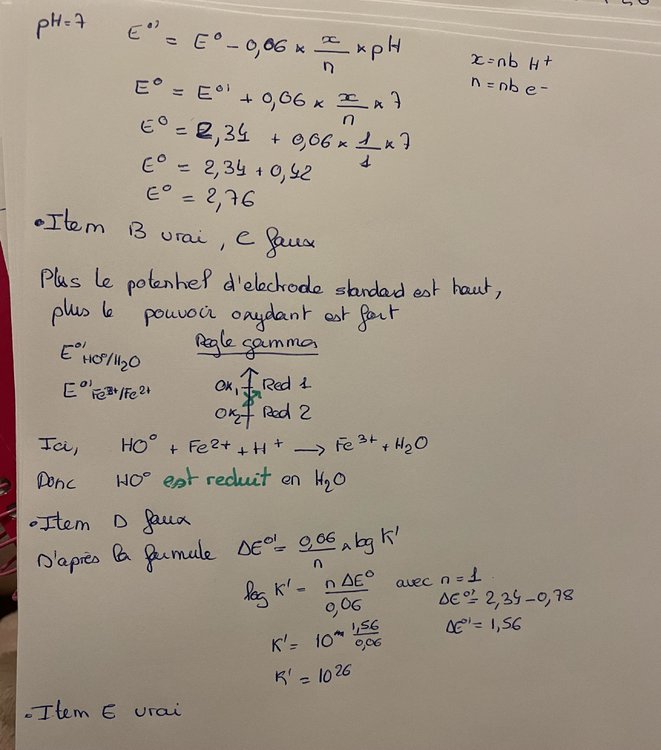 pH=7
E°' = E° - 0,06 × x/n × pH
x = nb H+
n = nb e-
E° = E°' + 0,06 × x/n × 7
E° = 2,34 + 0,06 × 1/1 × 7
E° = 2,34 + 0,42
E° = 2,76
• Item B vrai, C faux
Plus le potentiel d'electrode standard est haut,
plus le pouvoir oxydant est fort
E°' HO°/H2O
Règle gamma
E°' Fe3+/Fe2+
Ox1 Red 1
Ox2 Red 2
Ici, HO° + Fe2+ + H+ → Fe3+ + H2O
Donc HO° est reduit en H2O
• Item D faux
D'après la formule ΔE°' = 0,06/n × log K'
log K' = n ΔE°/0,06 avec n = 1
ΔE°' = 2,34 - 0,78
K' = 10^ 1,56/0,06
ΔE°' = 1,56
K' = 10^26
• Item E vrai